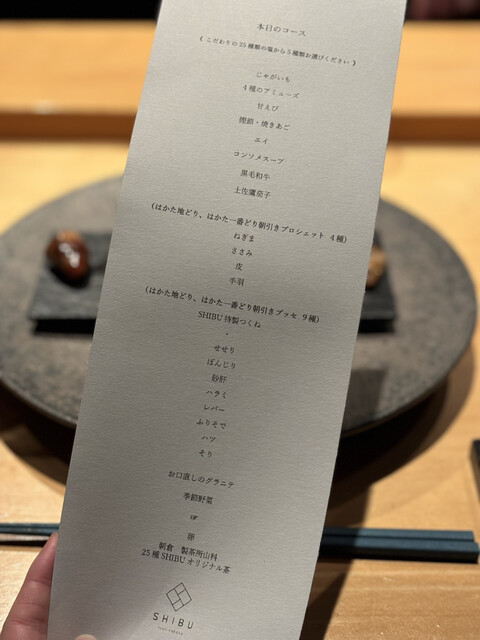 本日のコース
( こだわりの25種類の塩から5種類お選びください )
じゃがいも
4種のアミューズ
甘えび
鰹節・焼きあご
エイ
コンソメスープ
黒毛和牛
土佐鷹茄子
(はかた地どり、はかた一番どり朝引きブロシェット 4種)
ねぎま
ささみ
皮
手羽
(はかた地どり、はかた一番どり朝引きブッセ 9種)
SHIBU特製つくね
・
せせり
ぼんじり
砂肝
ハラミ
レバー
ふりそで
ハツ
そり
お口直しのグラニテ
季節野菜
or
卵
朝倉 製茶所山科
25種SHIBUオリジナル茶
SHIBU